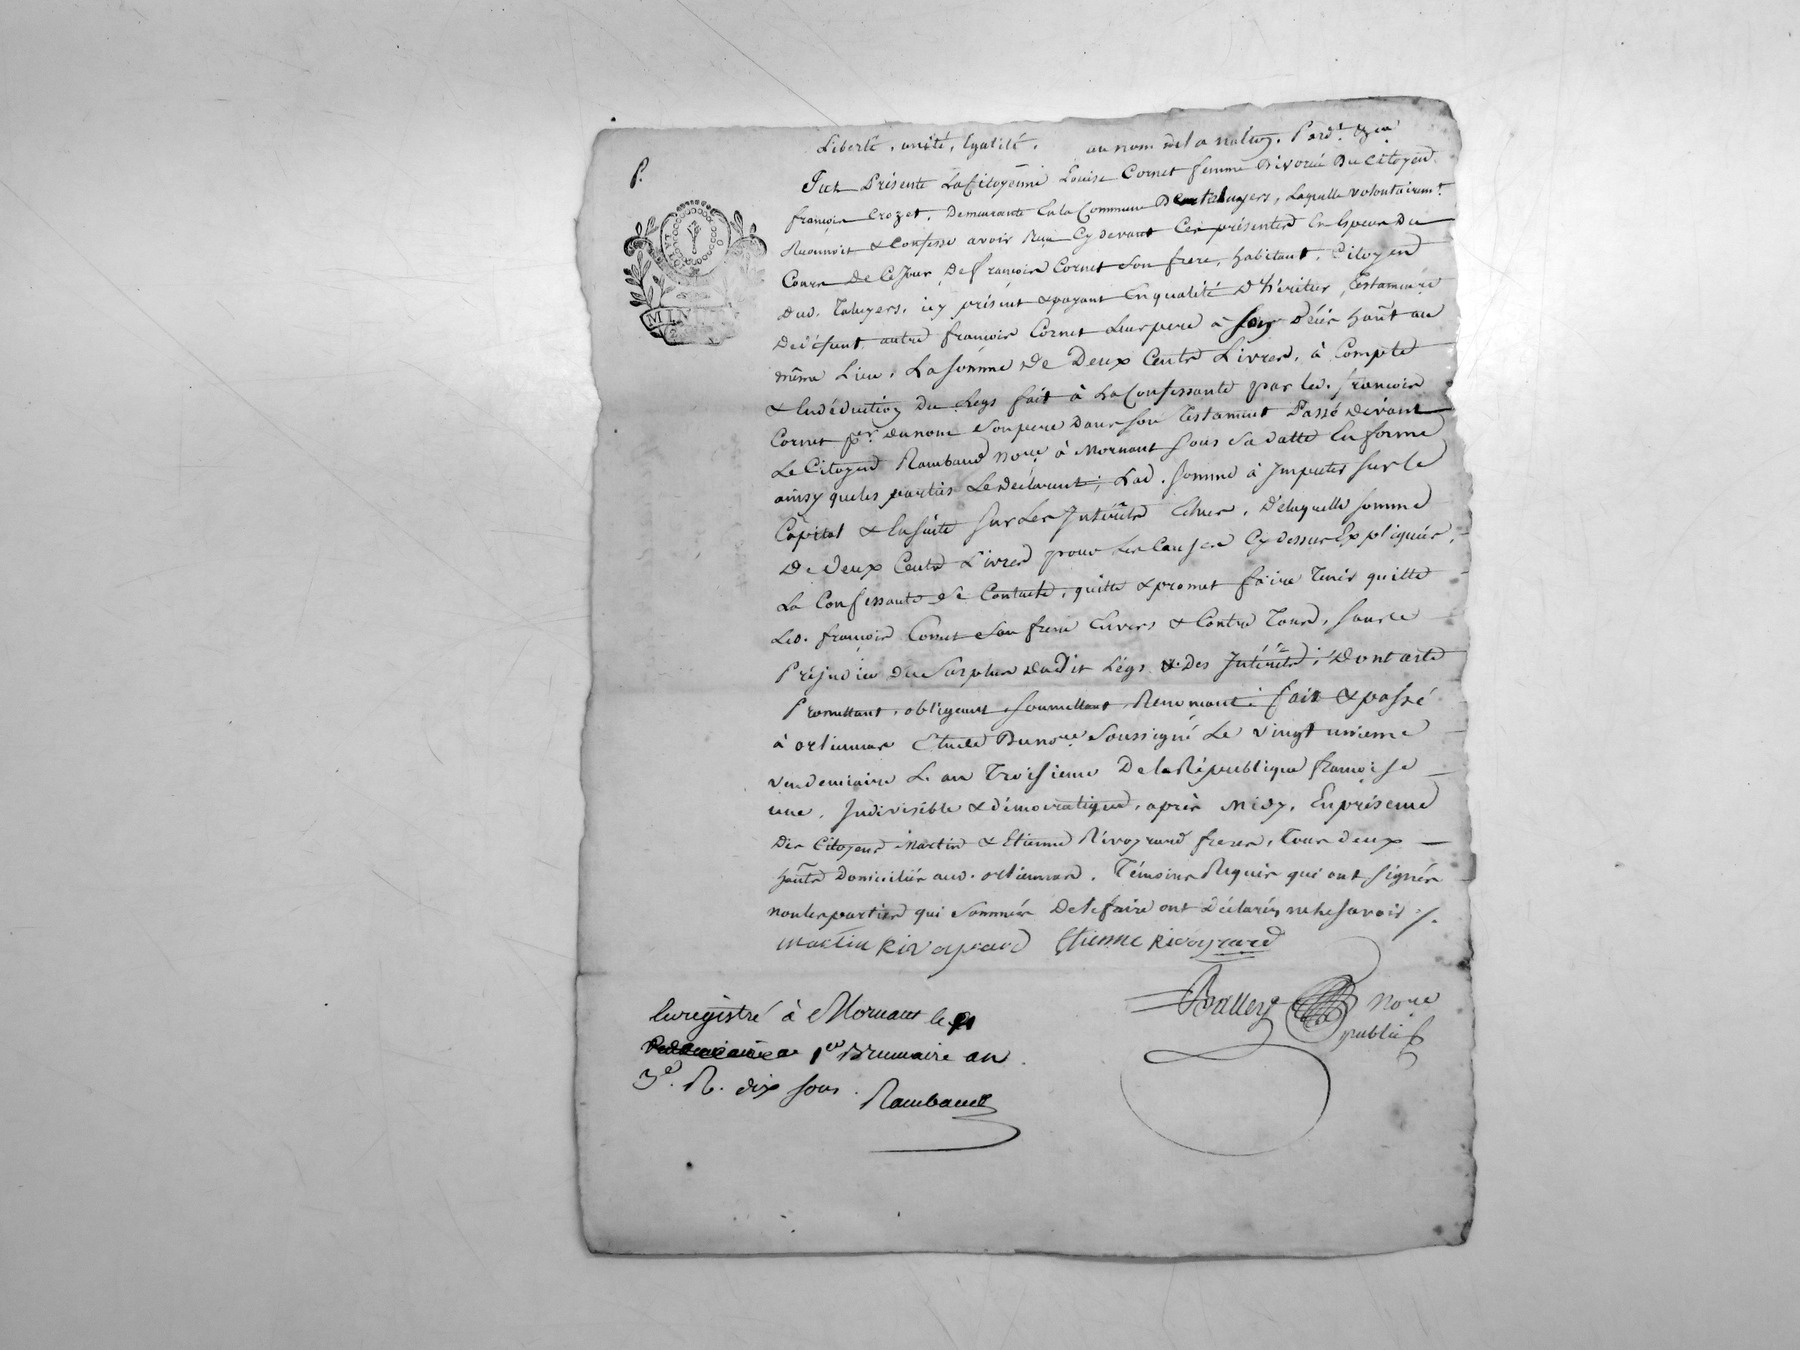 P.
Liberté, unité, Egalité. au nom de la nation. Pard.t &ca
Fut Présente La Citoyenne Louise Cornet femme Divorcée Du Citoyen
françois Crozet, Demeurante En la Commune De Taluyers, Laquelle volontairem.t
Reconnoit & Confesse avoir Reçu Cy devant Ces présentes En Espece Du
Cours De Ce Jour, De françois Cornet Son frere, habitant, Citoyen
dud. Taluyers, icy présent & payant En qualité D'héritier, Testamen.re
De défunt autre françois Cornet Leur pere à Son Décès han̄t au
même Lieu, La somme De Deux Cents Livres, à Compte
& En déduction Du Legs fait à La Confessante par led. françois
Cornet p.er du nom Son pere Dans Son Testament Passé Devant
Le Citoyen Rambaud no.re à Mornant Sous Sa datte En forme
ainsy que les parties Le Déclarent, Lad. somme à Imputer sur le
Capital & Ensuite sur Les Intérêts Echus, De laquelle somme
De Deux Cents Livres pour Les Causes Cy dessus Expliquées,
La Confessante Se Contente, quitte & promet faire Tenir quitte
Led. françois Cornet Son frere Envers & Contre Tous, sans
Préjudice du Surplus dudit Légs & Des Intérêts; Dont acte
Promettant, obligeant, soumettant, Renonçant; fait & passé
à orlienas Etude Du no.re Soussigné Le vingt unieme
vendemiaire L'an Troisieme De la République françoise
une, Indivisible & démocratique, après Midy, En présence
Des Citoyens Martin & Etienne Rivoyrard freres, Tous deux
han̄ts Domiciliés aud. orlienas, Témoins Requis qui ont signés
non les parties qui Sommées De le faire ont Déclarés ne le savoir ./.
martin Rivoyrard Etienne Rivoyrard
no.re
public
Enregistré à Mornant le
1.er Brumaire an
3.e R. dix sous.
Rambaud